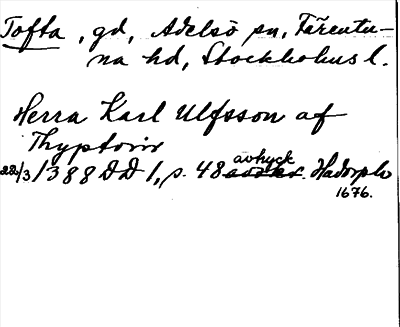 Tofta, gd, Adelsö sn, Färentu-
na hd, Stockholms l.
Herra Karl Ulfsson af
Thyptovir
22/3 1388 DD 1, s. 48 avtryck Hadorph
1676.